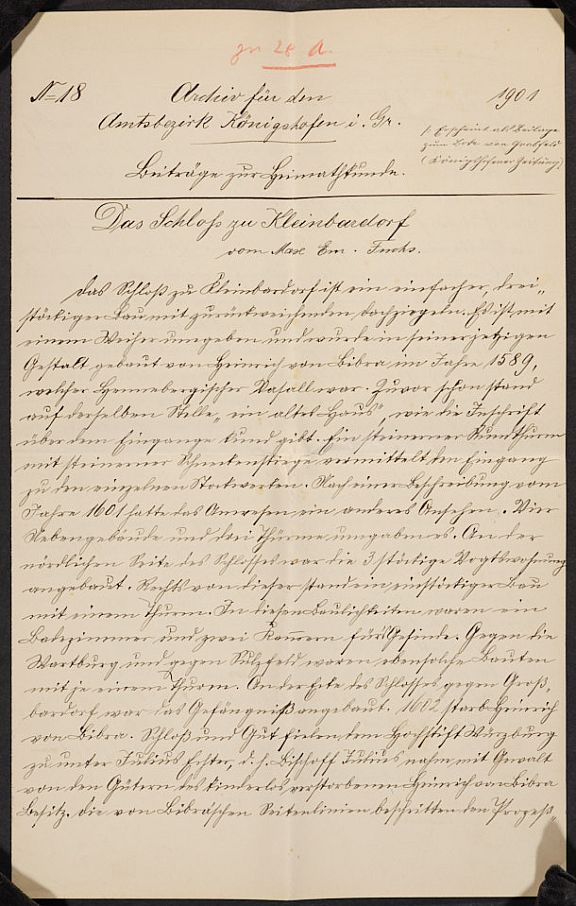 zu 28 A.
No 18
Archiv für den
1901
Amtsbezirk Königshofen i. Gr.
(: Erscheint als Beilage
zum Bote vom Grabfeld
(Königshofener Zeitung)
Beiträge zur Heimathkunde.
Das Schloß zu Kleinbardorf
vom Max Em. Fuchs.
Das Schloß zu Kleinbardorf ist ein einfacher, drei„
stöckiger Bau mit zurückweichenden Dachziegeln. Es ist mit
einem Weiher umgeben und wurde in seiner jetzigen
Gestalt gebaut von Heinrich von Bibra im Jahre 1589,
welcher Hennebergischer Vasall war. Zuvor schon stand
auf derselben Stelle „ein altes Haus", wie die Inschrift
über dem Eingange kund gibt. Ein steinerner Rundthurm
mit steinerner Schneckenstiege vermittelt den Eingang
zu den einzelnen Stockwerken. Nach einer Beschreibung vom
Jahre 1601 hatte das Anwesen ein anderes Ansehen. Vier
Nebengebäude und drei Thürme umgaben es. An der
nördlichen Seite des Schlosses war die 3 stöckige Vogtswohnung
angebaut. Rechts von dieser stand ein einstöckiger Bau
mit einem Thurm. In diesen Baulichkeiten waren ein
Badezimmer und zwei Kammern für's Gesinde. Gegen die
Wartburg und gegen Sulzfeld waren ebensolche Bauten
mit je einem Thurm. An der Ecke des Schlosses gegen Groß„
bardorf war das Gefängniß angebaut. 1602 starb Heinrich
von Bibra. Schloß und Gut fielen dem Hochstift Würzburg
zu unter Julius Echter, d. h. Bischoff Julius nahm mit Gewalt
von den Gütern des kinderlos verstorbenen Heinrich von Bibra
Besitz. Die von Bibra'schen Seitenlinien beschritten den Prozeß„